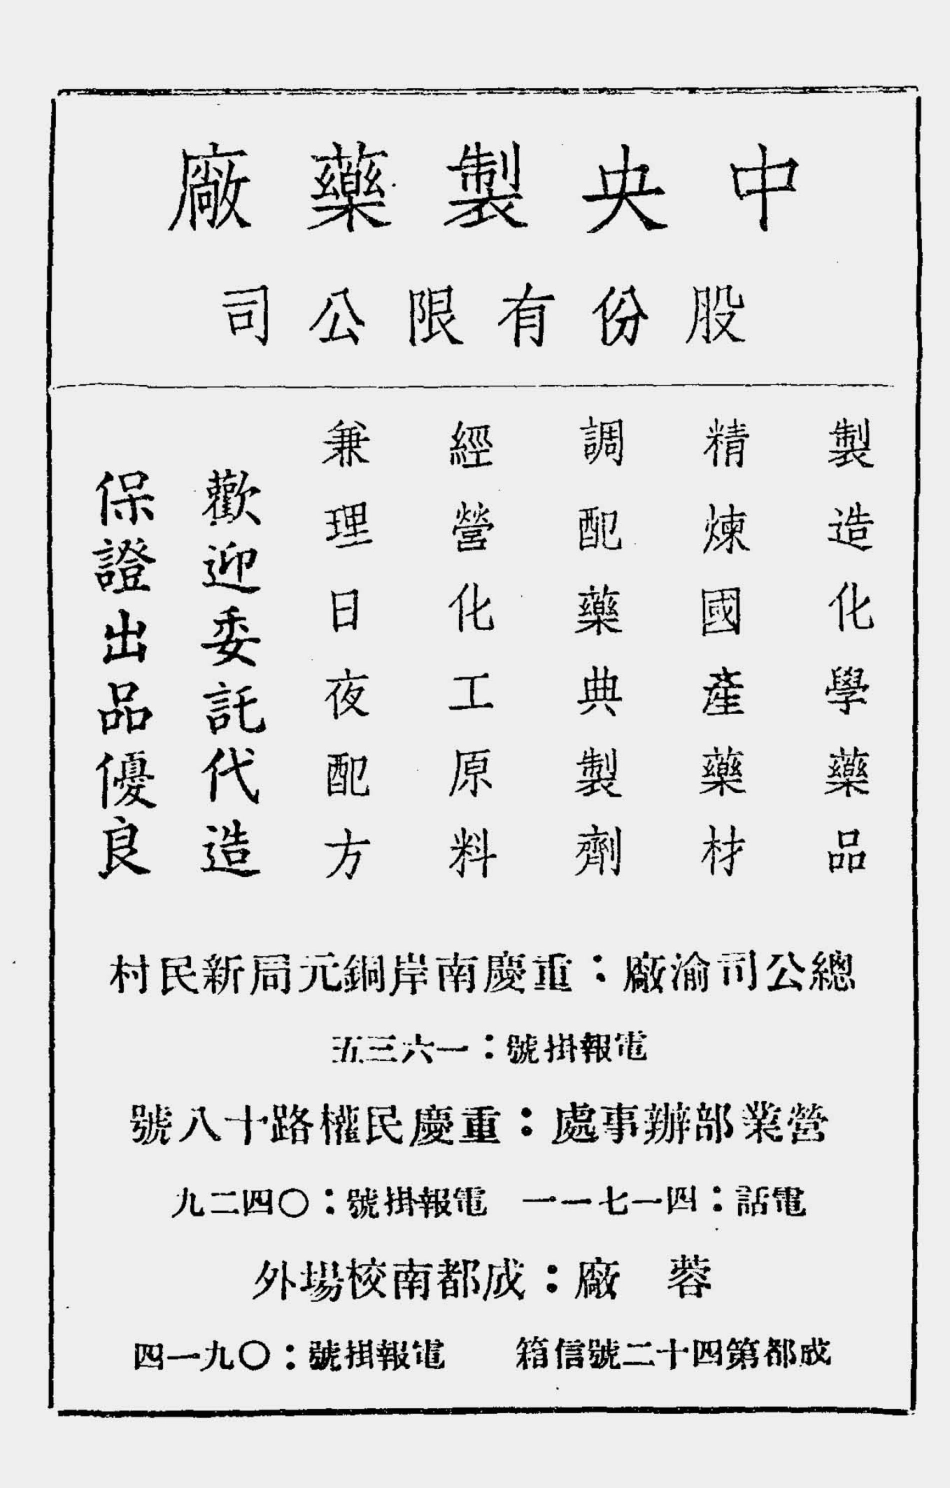 中央製藥廠
股份有限公司
製造化學藥品
精煉國產藥材
調配藥典製劑
經營化工原料
兼理日夜配方
歡迎委託代造
保證出品優良
總公司渝廠：重慶南岸銅元局新民村
電報掛號：一六三五
營業部辦事處：重慶民權路十八號
電話：四一七一一　電報掛號：〇四二九
蓉　廠：成都南校場外
成都第四十二號信箱　電報掛號：〇九一四